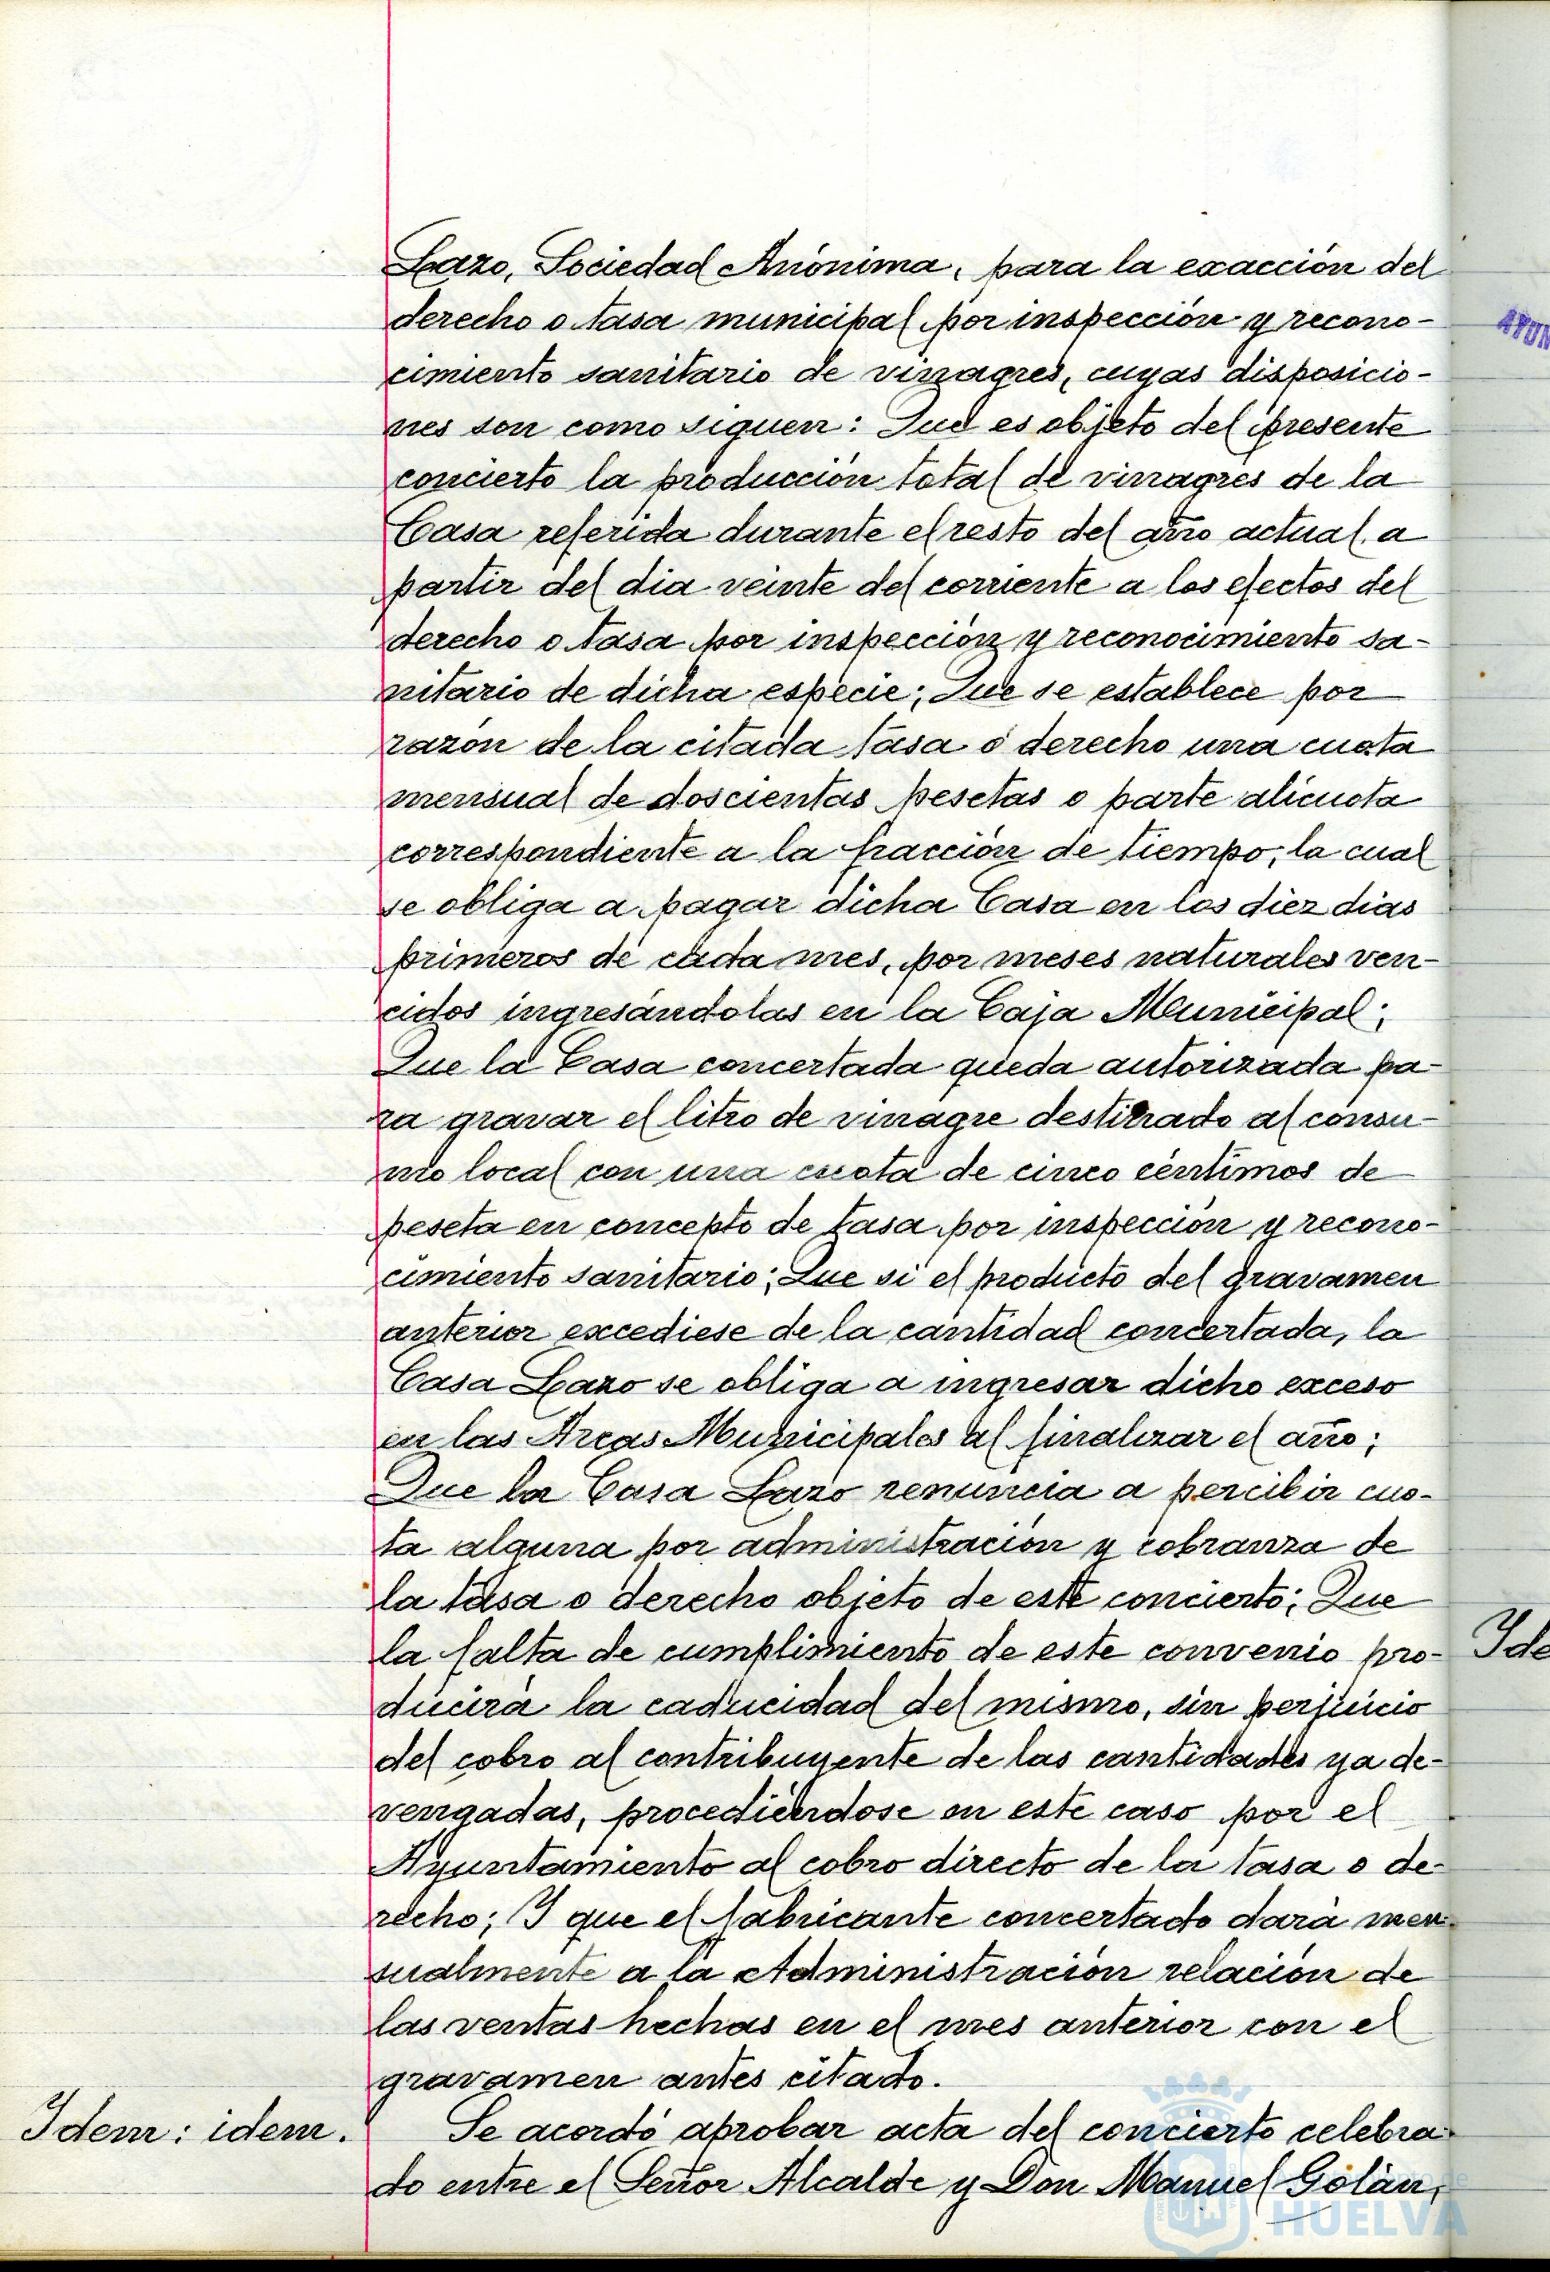 Lazo, Sociedad Anónima, para la exacción del
derecho o tasa municipal por inspección y recono-
cimiento sanitario de vinagres, cuyas disposicio-
nes son como siguen: Que es objeto del presente
concierto la producción total de vinagres de la
Casa referida durante el resto del año actual a
partir del dia veinte del corriente a los efectos del
derecho o tasa por inspección y reconocimiento sa-
nitario de dicha especie; Que se establece por
razón de la citada tasa ó derecho una cuota
mensual de doscientas pesetas o parte alicuota
correspondiente a la fracción de tiempo, la cual
se obliga a pagar dicha Casa en los diez dias
primeros de cada mes, por meses naturales ven-
cidos ingresándolas en la Caja Municipal;
Que la Casa concertada queda autorizada pa-
ra gravar el litro de vinagre destinado al consu-
mo local con una cuota de cinco céntimos de
peseta en concepto de tasa por inspección y recono-
cimiento sanitario; Que si el producto del gravamen
anterior excediese de la cantidad concertada, la
Casa Lazo se obliga a ingresar dicho exceso
en las Arcas Municipales al finalizar el año;
Que la Casa Lazo renuncia a percibir cuo-
ta alguna por administración y cobranza de
la tasa o derecho objeto de este concierto; Que
la falta de cumplimiento de este convenio pro-
ducirá la caducidad del mismo, sin perjuicio
del cobro al contribuyente de las cantidades ya de-
vengadas, procediéndose en este caso por el
Ayuntamiento al cobro directo de la tasa o de-
recho; Y que el fabricante concertado dará men-
sualmente a la Administración relación de
las ventas hechas en el mes anterior con el
gravamen antes citado.
Idem: idem.
Se acordó aprobar acta del concierto celebra-
do entre el Señor Alcalde y Don Manuel Golán,
AYUN
Ide
HUELVA